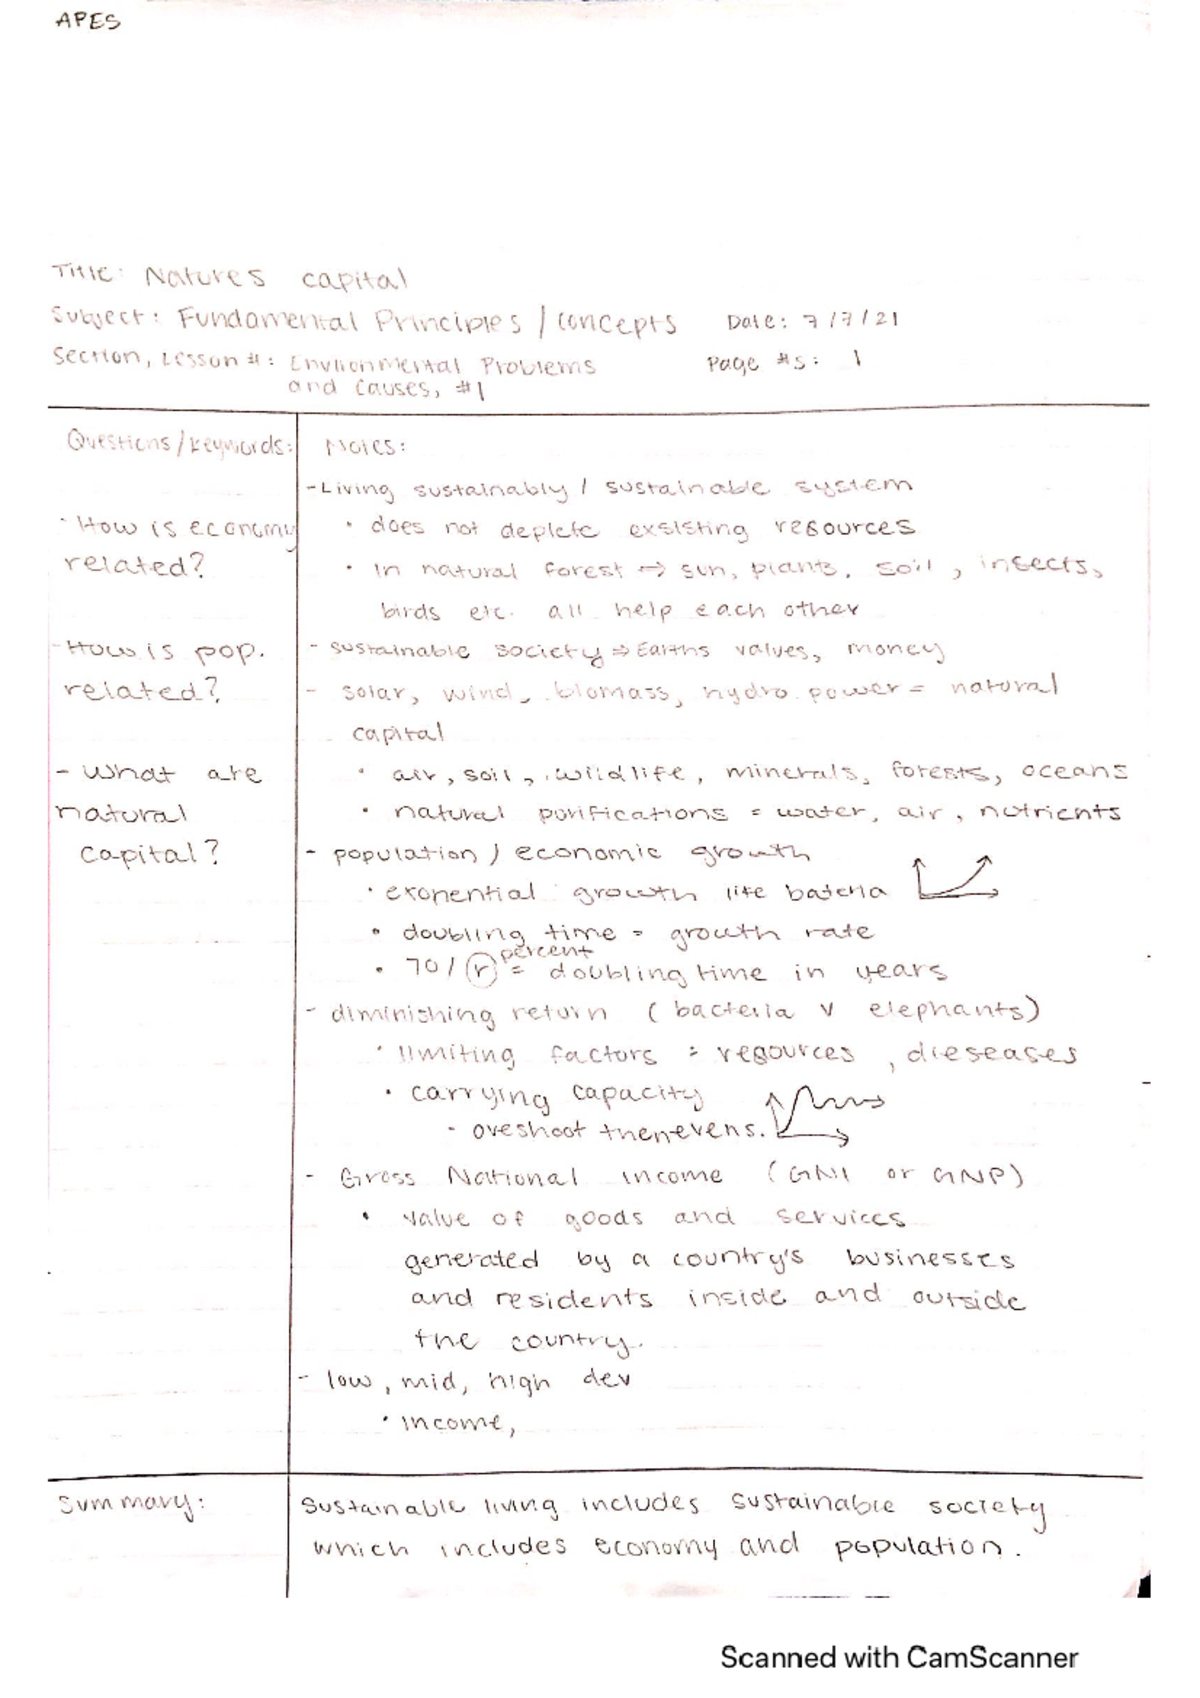 APES
Title: Natures capital
Subject: Fundamental Principles / concepts Date: 7/7/21
Section, Lesson #: Environmental Problems Page #s: 1
and causes, #1
Questions/keywords: Notes:
-Living sustainably / sustainable system
· How is economy · does not deplete exsisting resources
related? · in natural forest → sun, plants, soil, insects,
birds etc. all help each other
-How is pop. - sustainable society ⇒ Earths values, money
related? - solar, wind, biomass, hydro power = natural
capital
- What are · air, soil, wildlife, minerals, forests, oceans
natural · natural purifications = water, air, nutrients
capital? - population / economic growth
· exponential growth like bacteria
· doubling time = growth rate
percent
· 70/r = doubling time in years
- diminishing return (bacteria v elephants)
· limiting factors = resources, dieseases
· carrying capacity
- oveshoot then evens.
- Gross National income (GNI or GNP)
· value of goods and services
generated by a country's businesses
and residents inside and outside
the country.
- low, mid, high dev
· income,
Summary: Sustainable living includes sustainable society
which includes economy and population.
Scanned with CamScanner